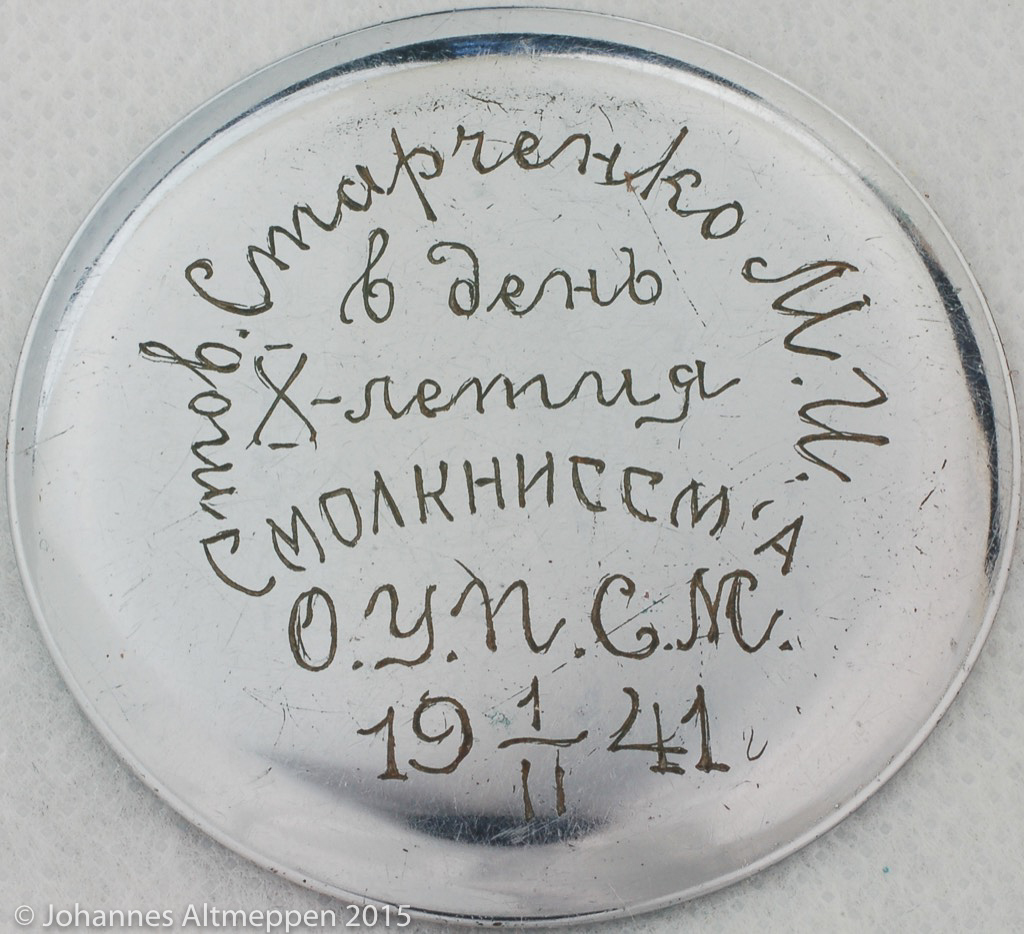 Стов. Старченко М. И.
в день
X-летия
СМОЛКНИССМ'А
О.У.П.С.М.
19 1/II 41 г
© Johannes Altmeppen 2015